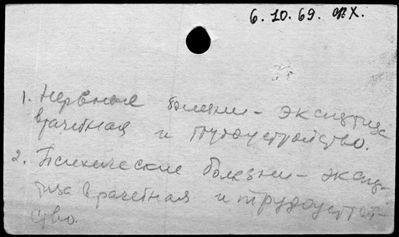 6.10.69. ПХ.
1. Нервные болезни – экспертиза
врачебная и трудоустройство.
2. Психические болезни – экспер-
тиза врачебная и трудоустрой-
ство.